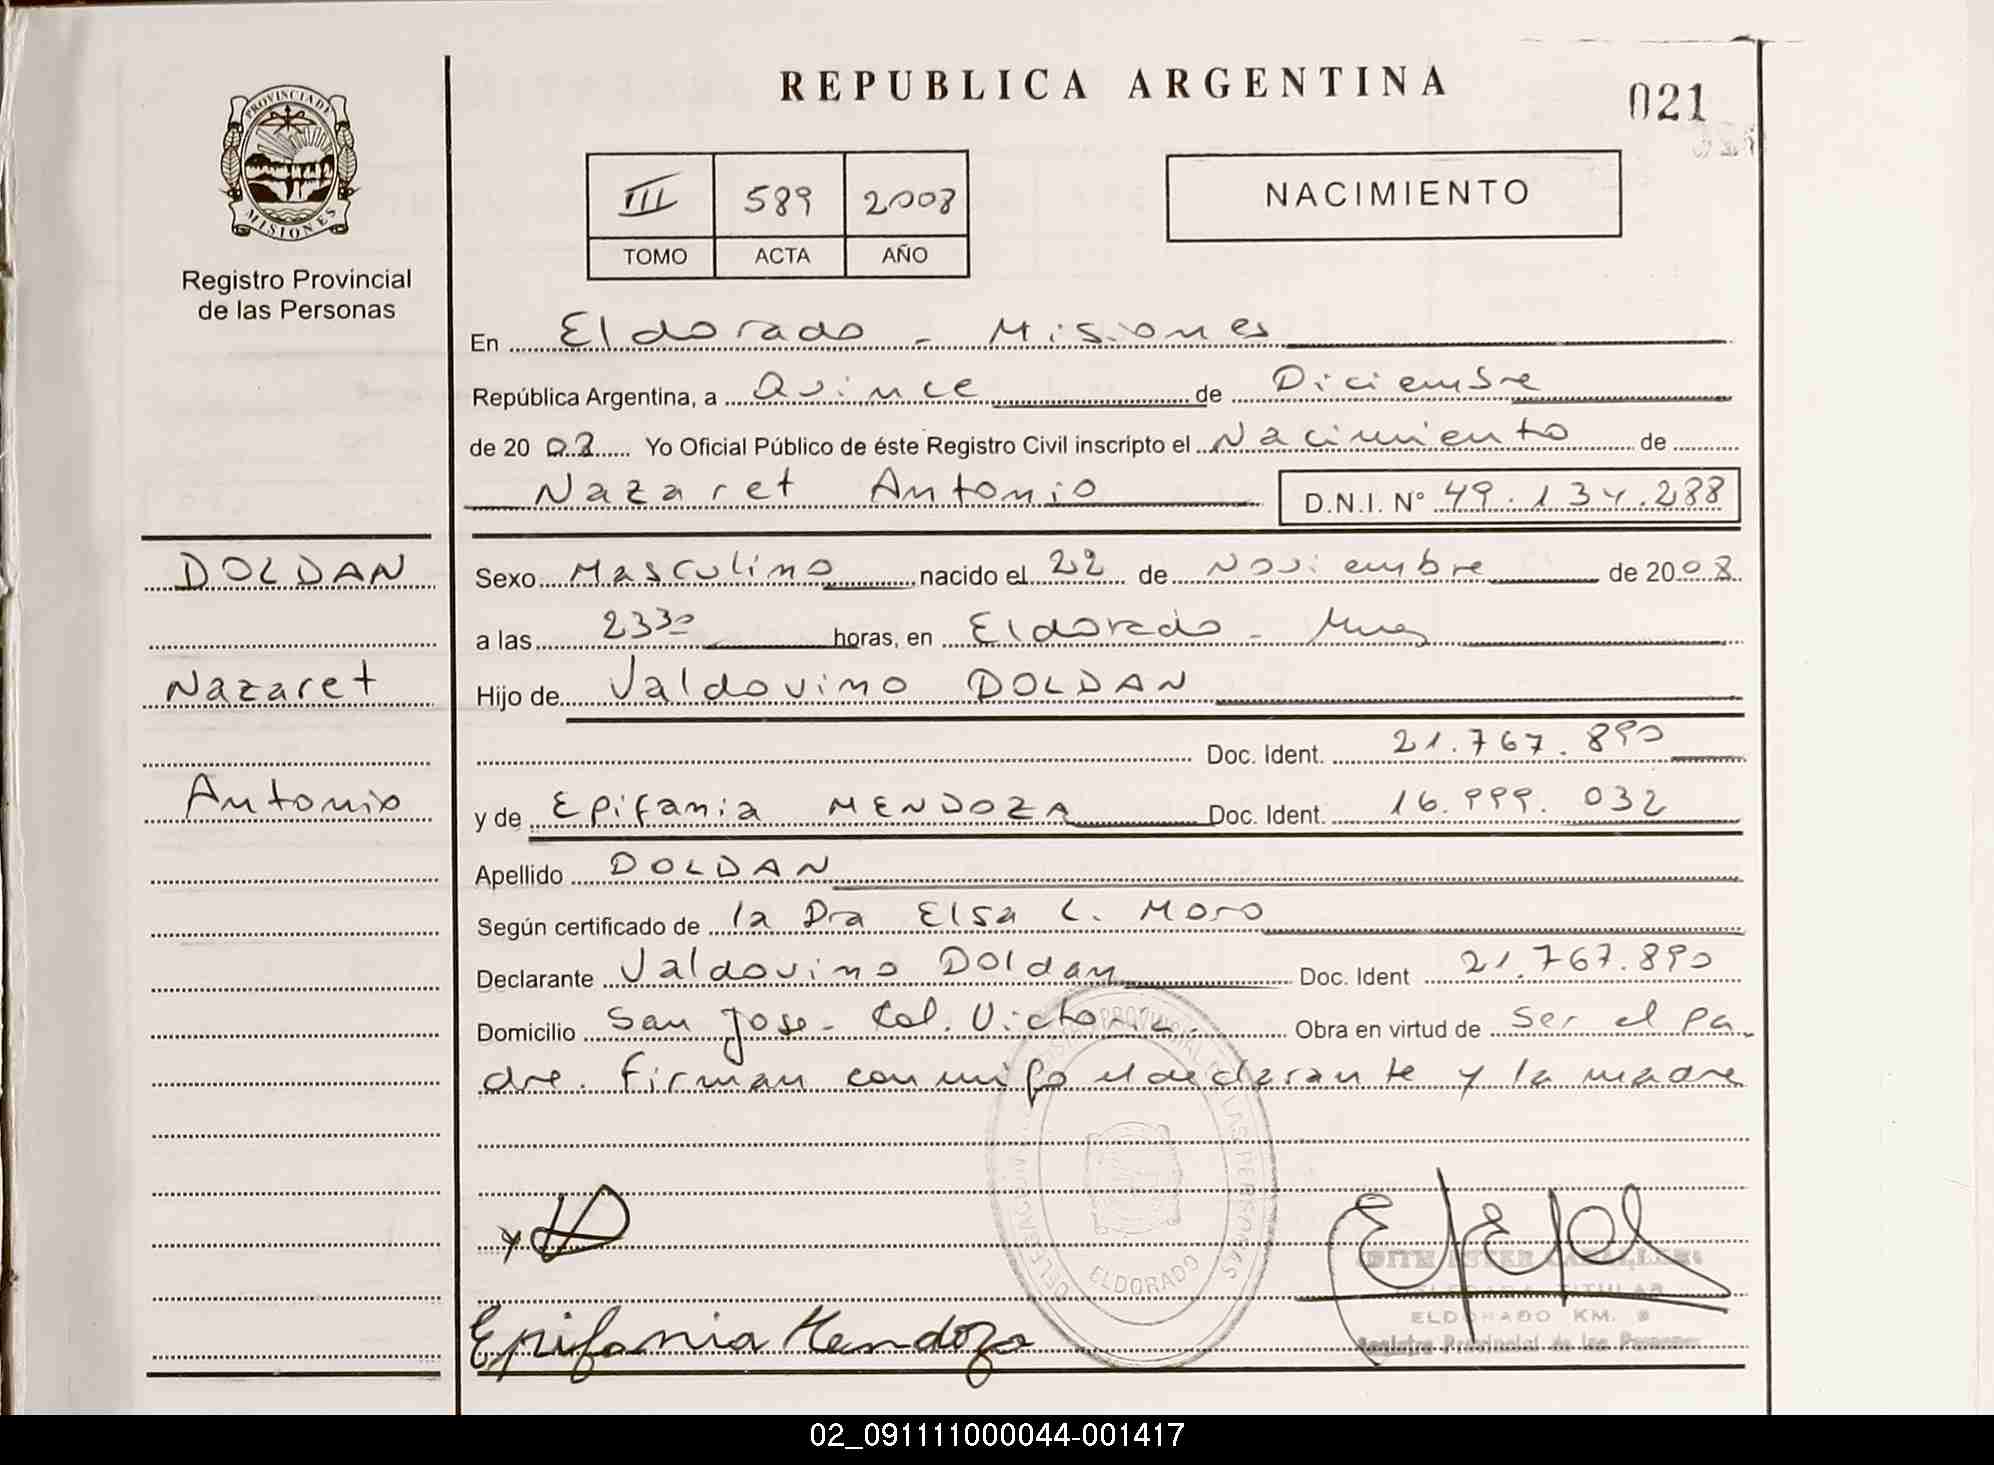 REPUBLICA ARGENTINA
021
PROVINCIA DE
MISIONES
Registro Provincial
de las Personas
III 589 2008
TOMO ACTA AÑO
NACIMIENTO
En Eldorado - Misiones
República Argentina, a Quince de Diciembre
de 20 08 Yo Oficial Público de éste Registro Civil inscripto el Nacimiento de
Nazaret Antonio D.N.I. Nº 49.134.288
DOLDAN
Nazaret
Antonio
Sexo Masculino nacido el 22 de Noviembre de 2008
a las 23 30 horas, en Eldorado - Mnes
Hijo de Valdovino DOLDAN
Doc. Ident. 21.767.890
y de Epifania MENDOZA Doc. Ident. 16.999.032
Apellido DOLDAN
Según certificado de la Dra Elsa L. Moro
Declarante Valdovino Doldan Doc. Ident 21.767.890
Domicilio San Jose - Col. Victoria. Obra en virtud de ser el pa-
dre. Firman conmigo el declarante y la madre
DELEGACION REGISTRO PROVINCIAL DE LAS PERSONAS
ELDORADO
DELEGADA TITULAR
ELDORADO KM. 9
Registro Provincial de las Personas
Epifania Mendoza
02_091111000044-001417